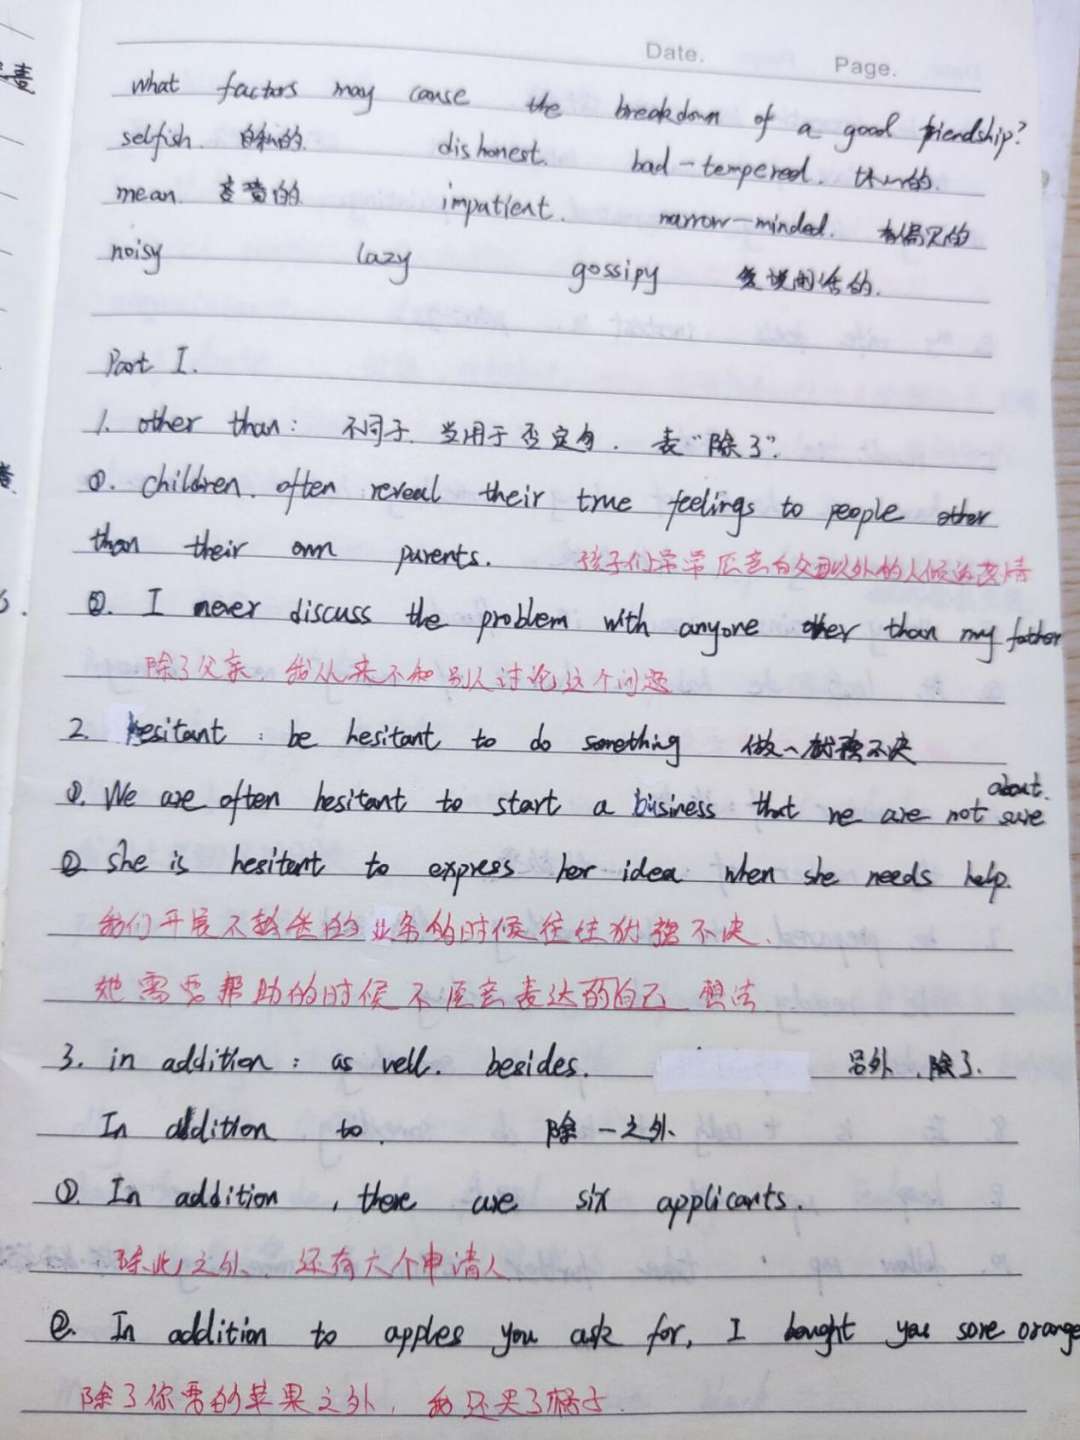 Date.
Page.
What factors may cause the breakdown of a good friendship?
selfish. 自私的. dishonest. bad-tempered.
mean. 吝啬的 impatient. narrow-minded. 有偏见的
noisy lazy gossipy 爱说闲话的.
Part I.
1. other than: 不同于. 当用于否定句. 表"除了".
①. children. often reveal their true feelings to people other
than their own parents. 孩子们常常愿意向父母以外的人
②. I never discuss the problem with anyone other than my father
除了父亲, 我从来不和别人讨论这个问题
2. hesitant : be hesitant to do something 做~犹豫不决
about.
①. We are often hesitant to start a business that we are not sure
② she is hesitant to express her idea when she needs help.
我们开展不熟悉的业务的时候往往犹豫不决.
她需要帮助的时候不愿意表达的自己 想法
3. in addition : as well. besides. 另外, 除了.
In addition to. 除~之外.
①. In addition , there are six applicants.
除此之外, 还有六个申请人
②. In addition to apples you ask for, I bought you sore orange
除了你要的苹果之外, 我还买了橘子.